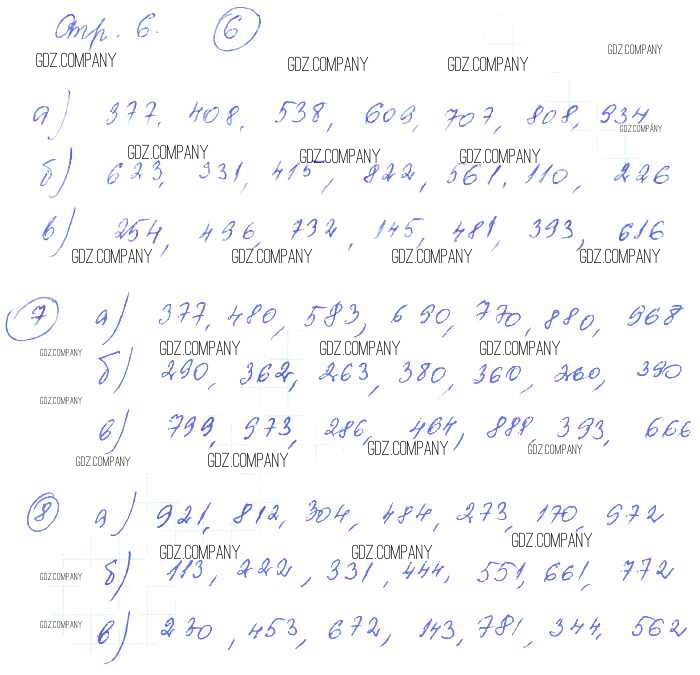 Стр. 6. 6
GDZ.COMPANY GDZ.COMPANY GDZ.COMPANY GDZ.COMPANY
а) 377, 408, 538, 609, 707, 808, 934
GDZ.COMPANY GDZ.COMPANY GDZ.COMPANY GDZ.COMPANY
б) 623, 931, 415, 822, 561, 110, 226
в) 254, 496, 732, 145, 481, 393, 616
GDZ.COMPANY GDZ.COMPANY GDZ.COMPANY GDZ.COMPANY
7 а) 377, 480, 583, 690, 770, 880, 968
GDZ.COMPANY GDZ.COMPANY GDZ.COMPANY GDZ.COMPANY
б) 290, 362, 263, 380, 360, 260, 390
GDZ.COMPANY
в) 799, 973, 286, 464, 888, 393, 666
GDZ.COMPANY GDZ.COMPANY GDZ.COMPANY GDZ.COMPANY
8 а) 921, 812, 304, 484, 273, 170, 972
GDZ.COMPANY GDZ.COMPANY GDZ.COMPANY
б) 113, 222, 331, 444, 551, 661, 772
GDZ.COMPANY
в) 230, 453, 672, 143, 781, 344, 562
GDZ.COMPANY